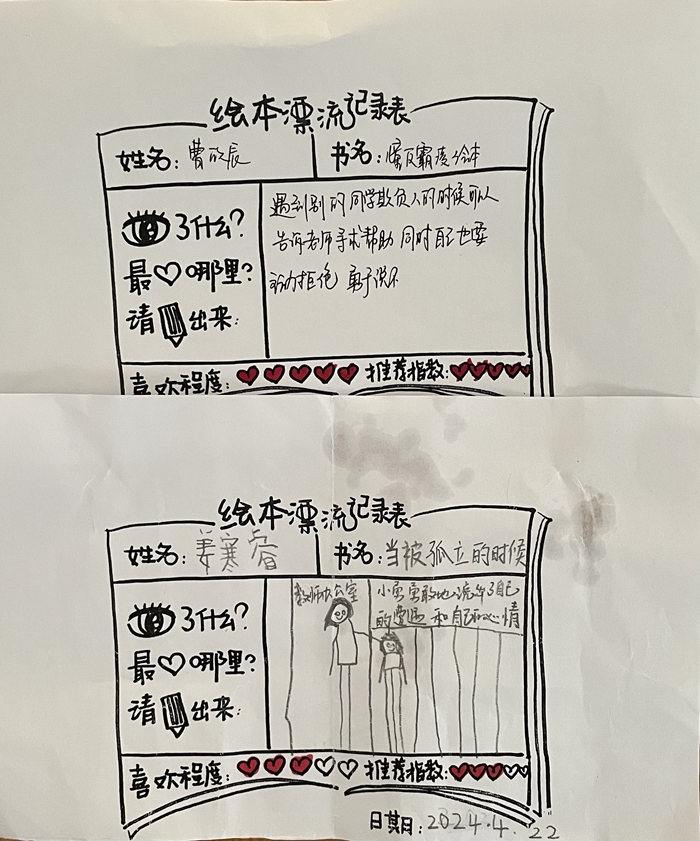 绘本漂流记录表
姓名：曹 辰
书名：霸凌绘本
了什么？
最 哪里？
请 出来：
遇到别的同学欺负人的时候可以
告诉老师寻求帮助 同时自己也要
拒绝 勇于说不
喜欢程度：
推荐指数：
绘本漂流记录表
姓名：姜寒睿
书名：当被孤立的时候
了什么？
最 哪里？
请 出来：
教师办公室
小勇勇敢地说出了自己
的遭遇 和自己的心情
喜欢程度：
推荐指数：
日期：2024.4.22